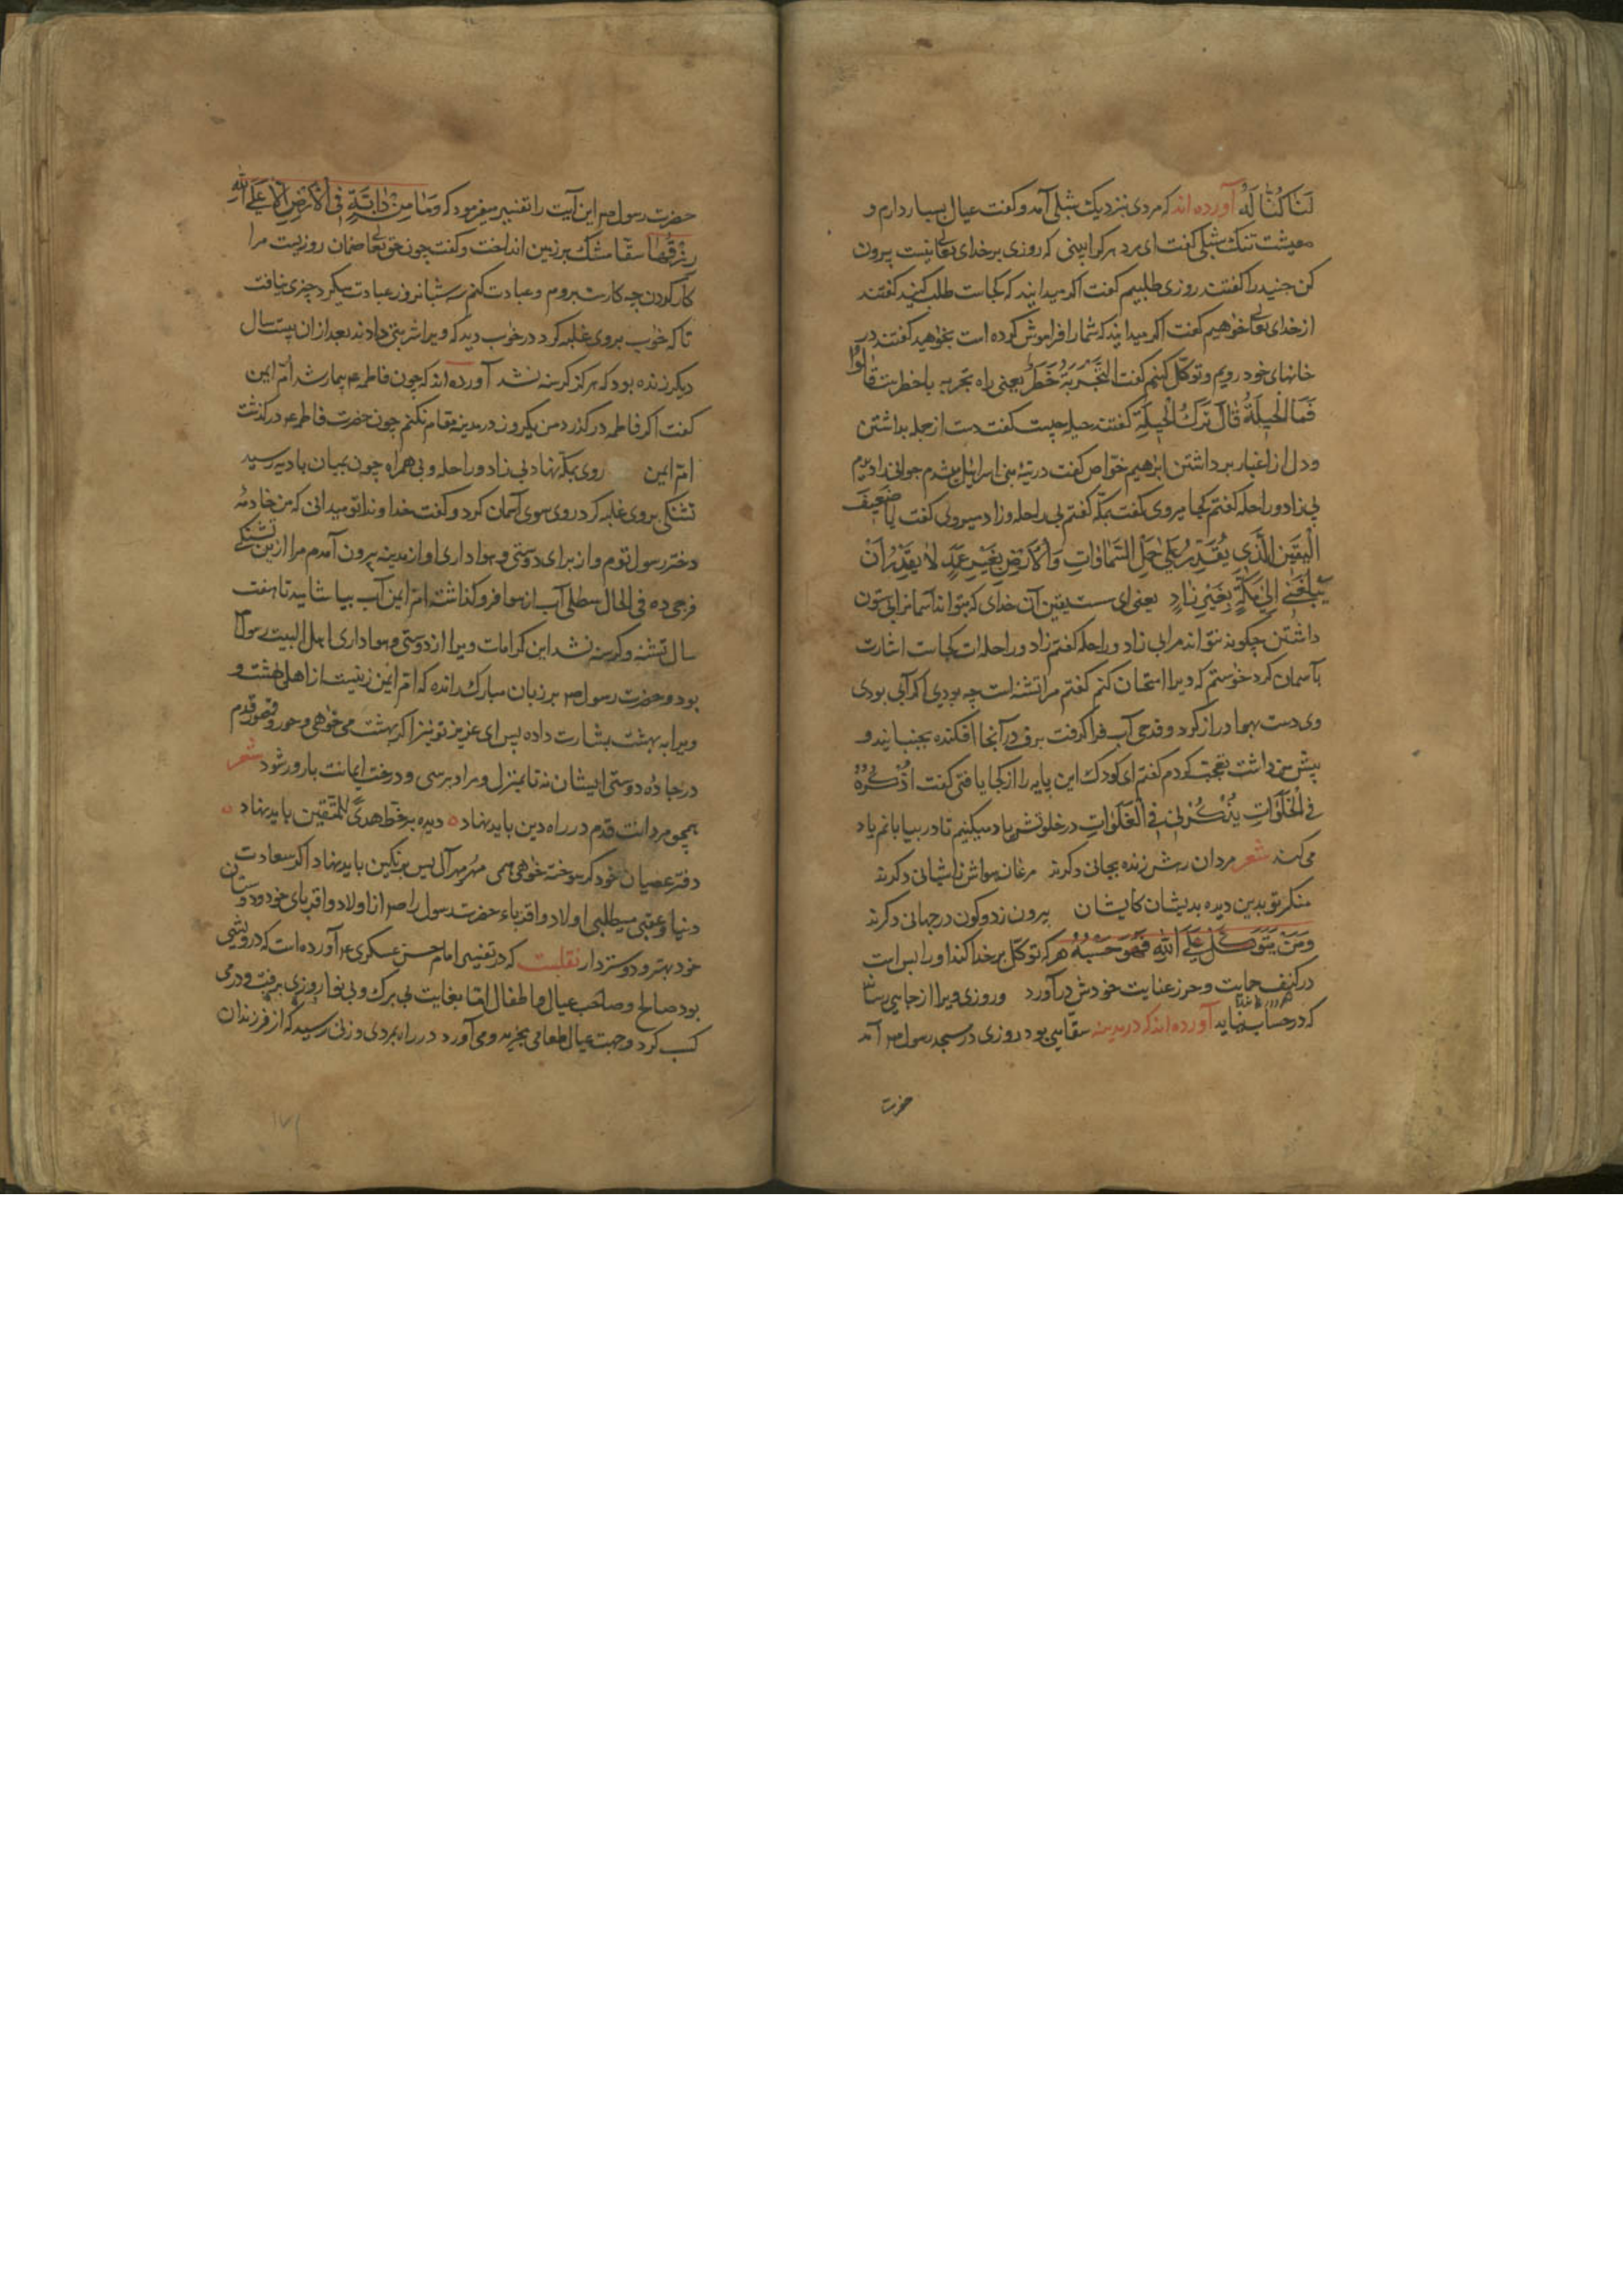 لَنَا كُنَّا لَهُ آورده‌اند که مردی بنزدیک شبلی آمد و کفت عیال بسیار دارم و
معیشت تنک شبلی کفت ای مرد هر کرا بینی که روزی بر خدای تعالی نیست بیرون
کن جنید را کفتند روزی طلبیم کفت اکر میدانید که کجاست طلب کنید کفتند
از خدای تعالی خواهیم کفت اکر میدانید که شما را فراموش کرده است بخواهید کفتند در
خانهای خود رویم و توکّل کنیم کفت التَّجْرِبَةُ خَطَرٌ یعنی راه تجربه با خطر ست قَالُوا
فَمَا الْحِیلَةُ قَالَ تَرْكُ الْحِیلَةِ کفتند حیله چیست کفت دست از حیله بداشتن
و دل از اغیار برداشتن ابرٰهیم خوّاص کفت در تیهٔ بنی اسرائیل میشدم جوانی را دیدم
بی زاد و راحله کفتم کجا میروی کفت بمکّه کفتم بی راحله و زاد میروی کفت یا ضَعِیفَ
الْیَقِینِ الَّذِی یُقَدِّرُ عَلٰی حَمْلِ السَّمَاوَاتِ وَالْاَرْضِ بِغَیْرِ عَمَدٍ لَا یَقْدِرُ اَنْ
یُبَلِّغَنِی اِلٰی مَكَّةَ بِغَیْرِ زَادٍ یعنی ای سست یقین آن خدای که بتواند آسمانرا بی ستون
داشتن چکونه نتواند مرا بی زاد و راحله کفتم زاد و راحله ات کجاست اشارت
بآسمان کرد خوستم که ویرا امتحان کنم کفتم مرا تشنه است چه بودی اکر آبی بودی
وی دست بهوا دراز کرد و قدحی آب فرا کرفت برف در آنجا افکنده بجنبانید و
پیش من داشت تعجب کردم کفتم ای کودک این پایه را از کجا یافتی کفت اَذْكُرُهُ
فِی الْخَلَوَاتِ یَذْكُرْنِی فِی الْفَلَوَاتِ در خلوتش یاد میکنیم تا در بیابانم یاد
می کند شعر مردان رهش زنده بجانی دکرند مرغان هواش ز آشیانی دکرند
منکر تو بدین دیده بدیشان کایشان بیرون ز دو کون در جهانی دکرند
وَمَنْ یَتَوَكَّلْ عَلَی اللّٰهِ فَهُوَ حَسْبُهُ هر که توکّل بر خدا کند او را بس است
در کنف حمایت و حرز عنایت خودش در آورد و روزی ویرا از جایی رساند
که در حساب نیاید آورده‌اند که در مدینه سقّایی بود روزی در مسجد رسول ص آمد
حضرت
حضرت رسول ص این آیت را تفسیر میفرمود که وَمَا مِنْ دَابَّةٍ فِی الْاَرْضِ اِلَّا عَلَی اللّٰهِ
رِزْقُهَا سقّا مشک بر زمین انداخت و کفت چون حق تعالی ضمان روزیست مرا
کار کردن چه کارست بروم و عبادت کنم سه شبانروز عبادت میکرد چیزی نیافت
تا که خواب بر وی غلبه کرد در خواب دید که ویرا شربتی دادند بعد از ان بیست سال
دیکر زنده بود که هرکز کرسنه نشد آورده‌اند که چون فاطمه ع بیمار شد اُمّ ایمن
کفت اکر فاطمه در کذرد من یکروز در مدینه مقام نکنم چون حضرت فاطمه ع در کذشت
امّ ایمن روی بمکّه نهاد بی زاد و راحله و بی همراه چون بمیان بادیه رسید
تشنکی بر وی غلبه کرد روی سوی آسمان کرد و کفت خداوندا تو میدانی که من خادمهٔ
دختر رسول توم و از برای دوستی و هواداری او از مدینه بیرون آمدم مرا ازین تشنکی
فرجی ده فی الحال سطلی آب از هوا فرو کذاشت امّ ایمن آب بیاشامید تا هفت
سال تشنه و کرسنه نشد این کرامات ویرا از دوستی و هواداری اهل البیت رسول
بود و حضرت رسول ص بر زبان مبارک رانده که امّ ایمن زنیست از اهل بهشت و
ویرا به بهشت بشارت داده پس ای عزیز تو نیز اکر بهشت می خواهی و حور و قصور قدم
در جادهٔ دوستی ایشان نه تا بمنزل و مراد برسی و درخت ایمانت بارور شود شعر
همچو مردانت قدم در راه دین باید نهاد ٥ دیده بر خط هُدًی للمتّقین باید نهاد ٥
دفتر عصیان خود کر سوخته خواهی همی مُهر مهر آل یس بر نکین باید نهاد اکر سعادت
دنیا و عقبی میطلبی اولاد و اقرباء حضرت رسول را ص از اولاد و اقربای خود و دوستان
خود بهتر و دوستر دار نقلست که در تفسیر امام حسن عسکری ع آورده است که درویشی
بود صالح و صاحب عیال و اطفال امّا بغایت بی برک و بی نوا روزی برفت و درمی
کسب کرد و جهت عیال طعامی بخرید و می آورد در راه بمردی و زنی رسید که از فرزندان
۱۷۱